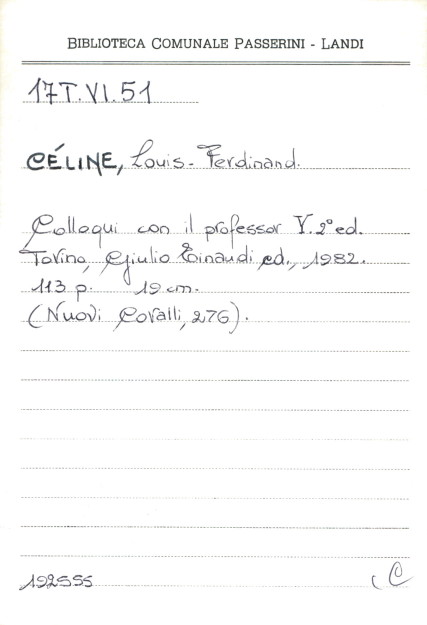 BIBLIOTECA COMUNALE PASSERINI - LANDI
17T.VI.51
CÉLINE, Louis-Ferdinand.
Colloqui con il professor Y. 2° ed.
Torino, Giulio Einaudi ed., 1982.
113 p. 19 cm.
(Nuovi Coralli, 276).
192555 C